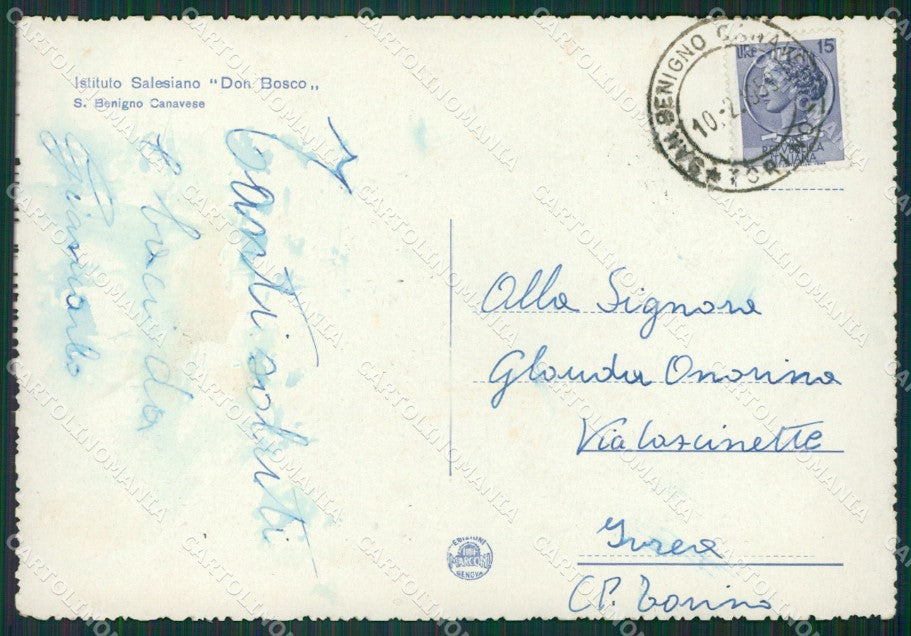 Istituto Salesiano "Don Bosco„
S. Benigno Canavese
Tanti saluti
da
SAN BENIGNO CANAVESE
10.-2.
TORINO
LIRE 15
REPVBBLICA
ITALIANA
Alla Signora
Glauda Onorina
Via Cascinette
Ivrea
(P. Torino
EDIZIONI
MARCONI
GENOVA
CARTOLINOMANIA